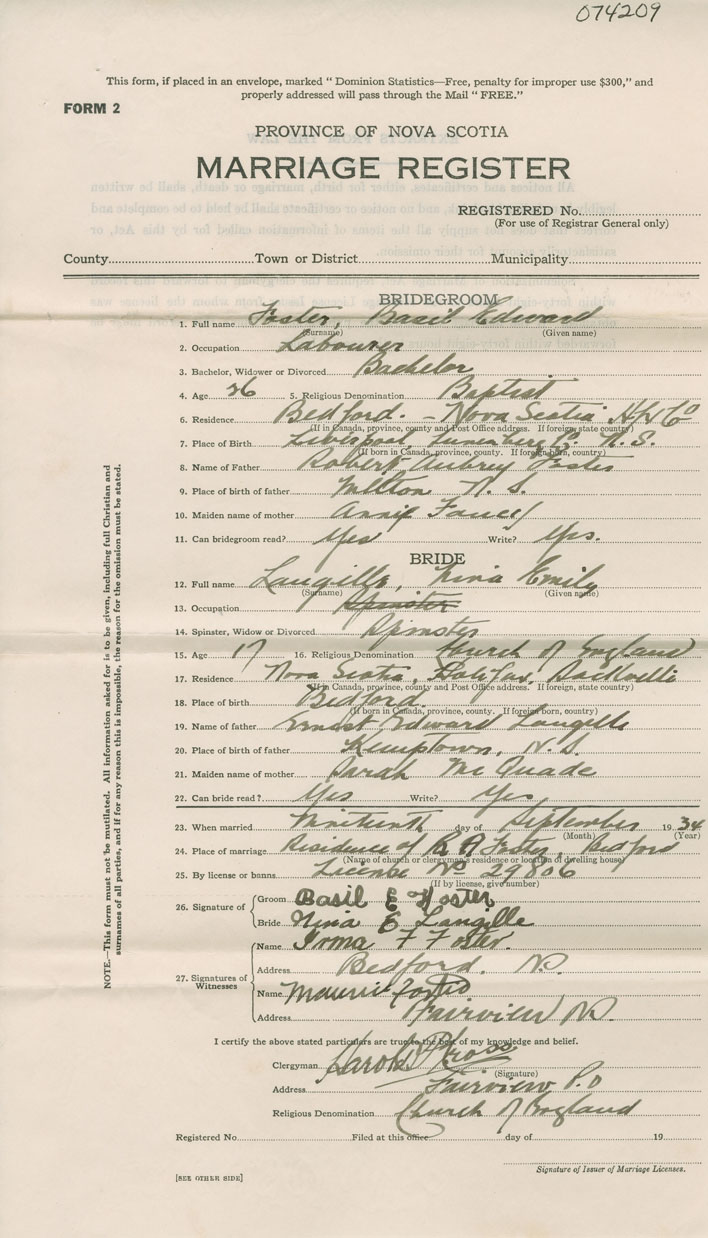 074209
This form, if placed in an envelope, marked " Dominion Statistics—Free, penalty for improper use $300," and
properly addressed will pass through the Mail " FREE."
FORM 2
PROVINCE OF NOVA SCOTIA
MARRIAGE REGISTER
REGISTERED No.
(For use of Registrar General only)
County Town or District Municipality
BRIDEGROOM
1. Full name Foster, Basil Edward
(Surname) (Given name)
2. Occupation Labourer
3. Bachelor, Widower or Divorced Bachelor
4. Age 26 5. Religious Denomination Baptist
6. Residence Bedford - Nova Scotia Hfx Co
(If in Canada, province, county and Post Office address. If foreign, state country)
7. Place of Birth Liverpool, Lunenburg Co. N.S.
(If born in Canada, province, county. If foreign born, country)
8. Name of Father Robert Aubrey Foster
9. Place of birth of father Milton N.S.
10. Maiden name of mother Annie
11. Can bridegroom read? Yes Write? Yes.
BRIDE
12. Full name Langille, Nina Emily
(Surname) (Given name)
13. Occupation Spinster
14. Spinster, Widow or Divorced Spinster
15. Age 17 16. Religious Denomination Church of England
17. Residence Nova Scotia, Halifax, Sackville
(If in Canada, province, county and Post Office address. If foreign, state country)
18. Place of birth Bedford.
(If born in Canada, province, county. If foreign born, country)
19. Name of father Ernest Edward Langille
20. Place of birth of father Kemptown, N.S.
21. Maiden name of mother Sarah McQuade
22. Can bride read? Yes Write? Yes
23. When married Nineteenth day of September 1934
(Month) (Year)
24. Place of marriage Residence of R A Foster, Bedford
(Name of church or clergyman's residence or location of dwelling house)
25. By license or banns License No 29806
(If by license, give number)
26. Signature of Groom Basil E Foster
Bride Nina E Langille
27. Signatures of Witnesses Name Irma F Foster.
Address Bedford. N.S.
Name Foster
Address Fairview N.S.
I certify the above stated particulars are true to the best of my knowledge and belief.
Clergyman Harold
(Signature)
Address Fairview P.O
Religious Denomination Church of England
Registered No. Filed at this office day of 19
Signature of Issuer of Marriage Licenses.
[SEE OTHER SIDE]
NOTE.—This form must not be mutilated. All information asked for is to be given, including full Christian and
surnames of all parties, and if for any reason this is impossible, the reason for the omission must be stated.